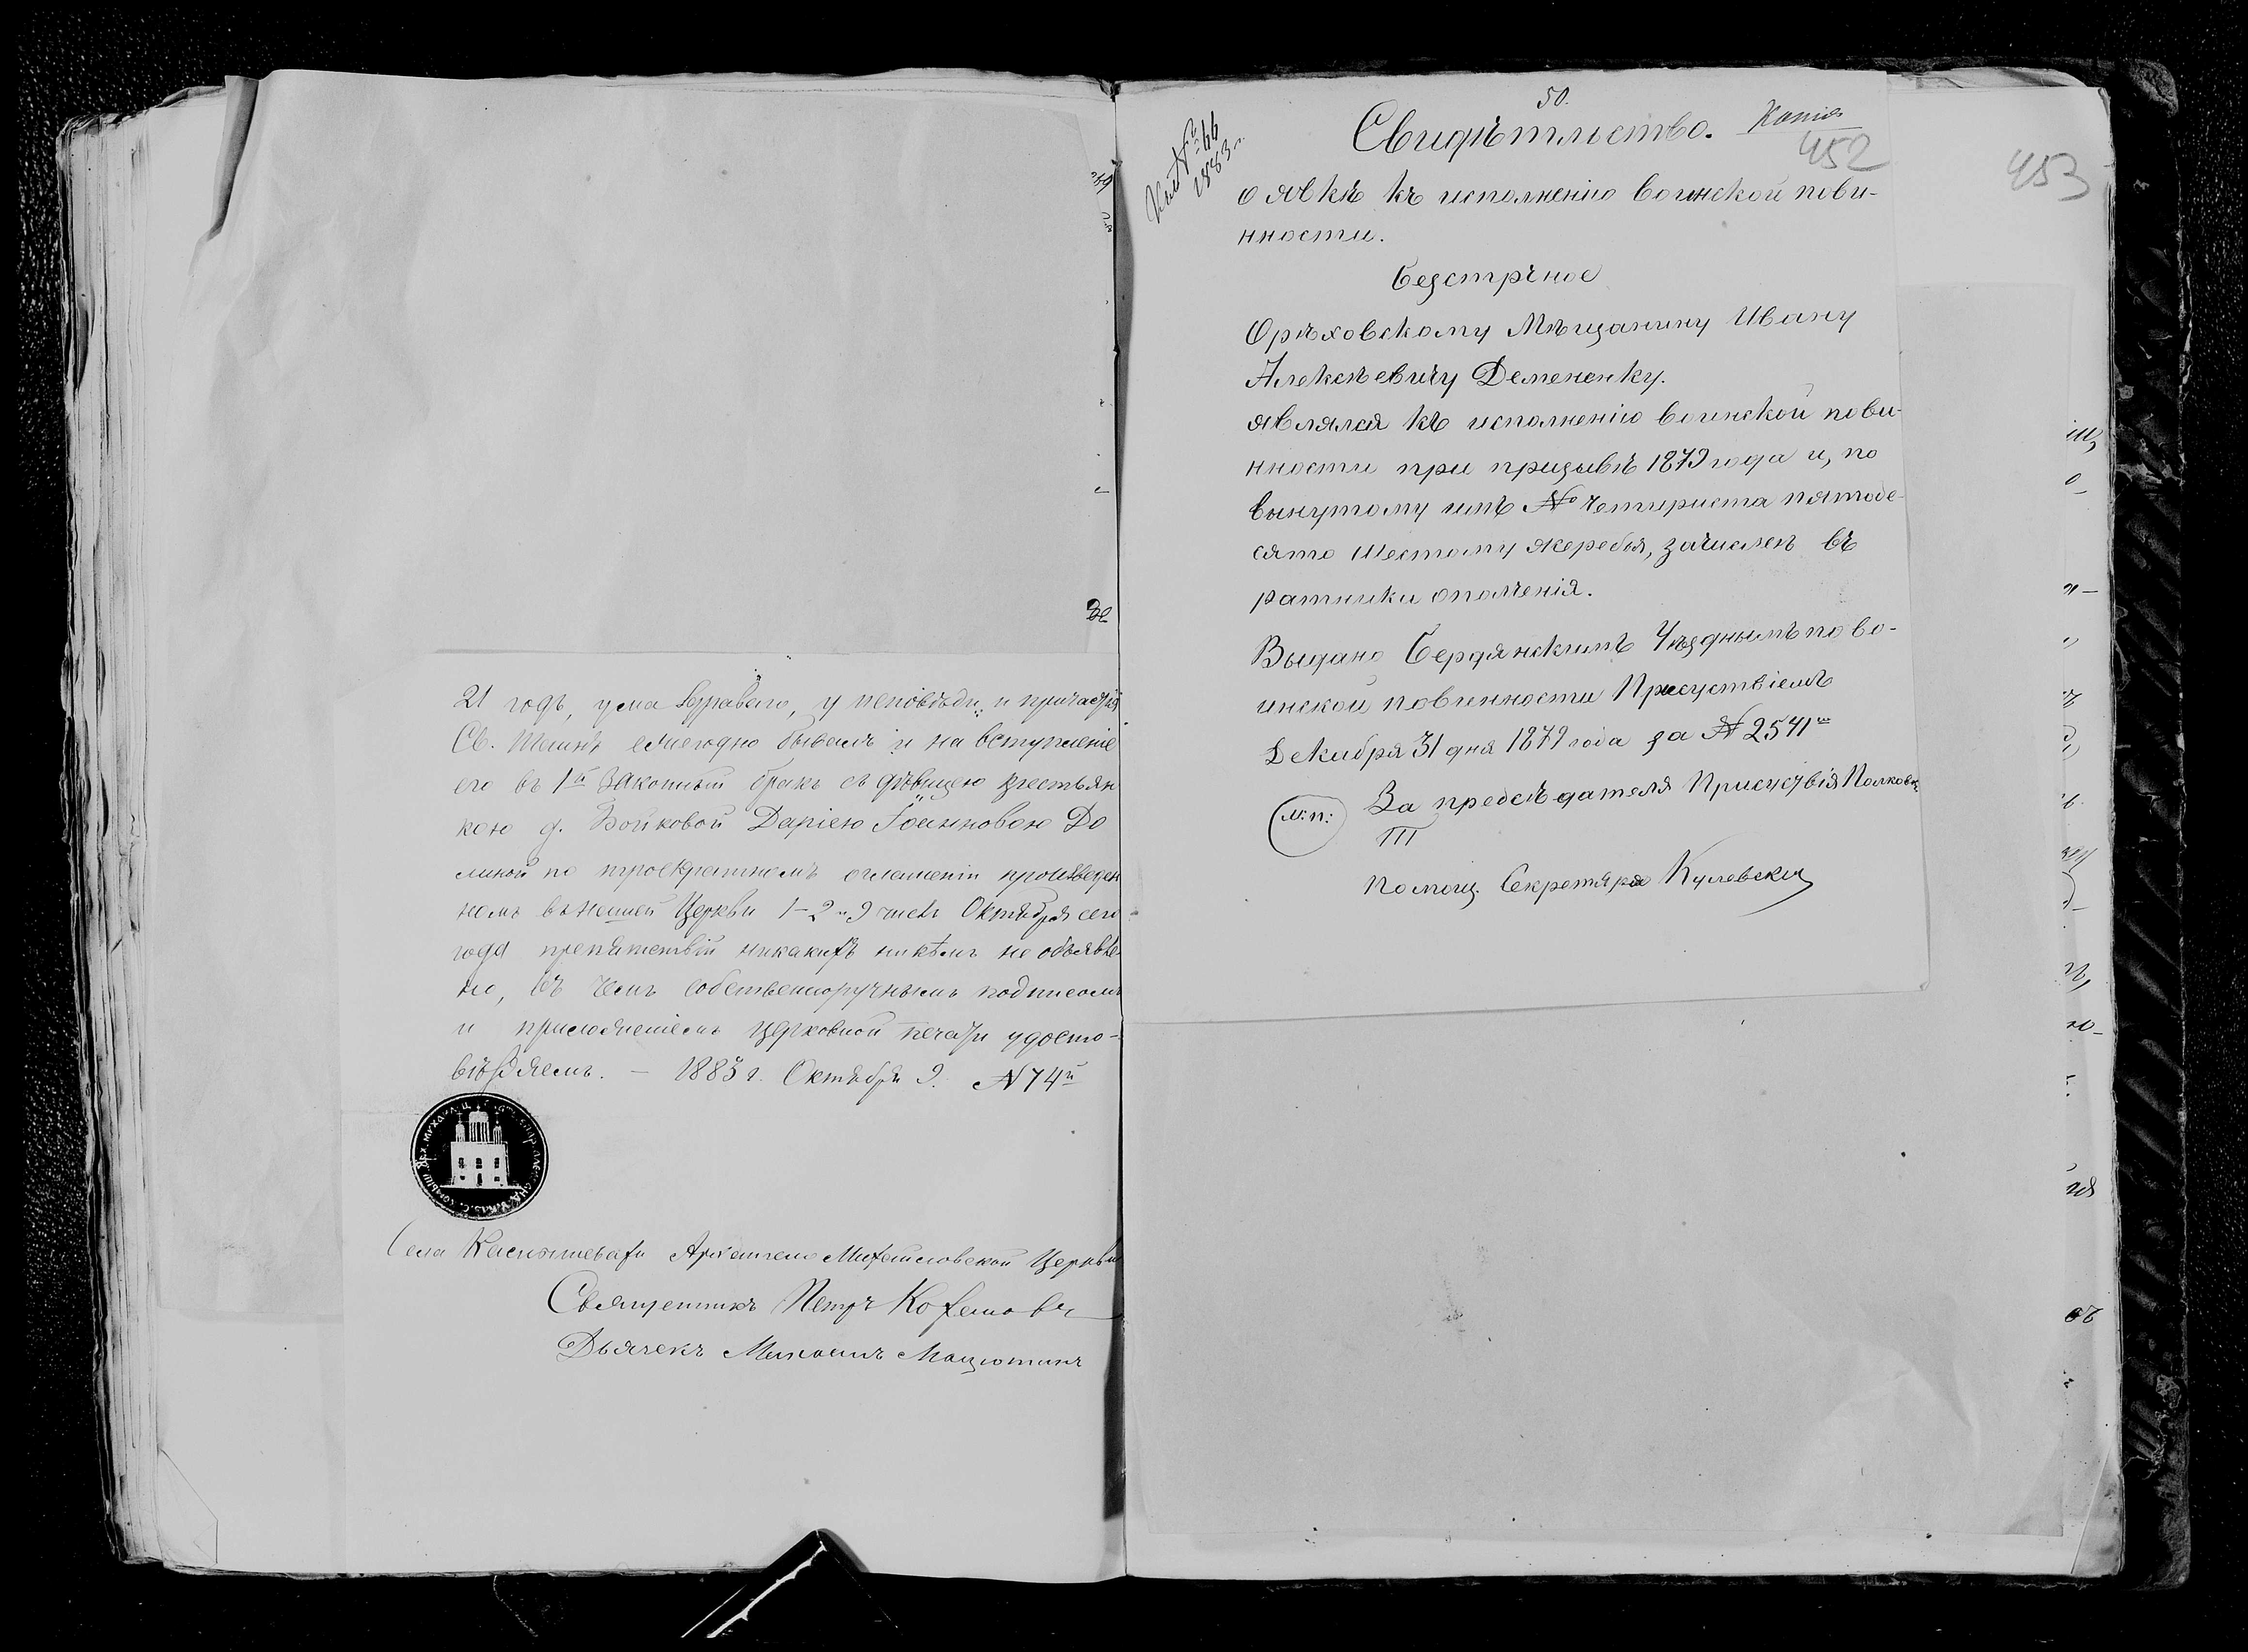 21 годъ, ума здраваго, у исповѣди и причастія
Св. Таинъ ежегодно бываетъ и на вступленіе
его въ 1й законный бракъ съ дѣвицею крестьян
кою д. Бойковой Даріею Іоанновою До
линой по троекратномъ оглашеніи произведен
номъ въ нашей Церкви 1-2 и 9 чиселъ Октября сего
года препятствій никакихъ никѣмъ не объявле
но, въ чемъ собственноручнымъ подписомъ
и приложеніемъ церковной печати удосто-
вѣряемъ. – 1883 г. Октября 9. № 74й
Села Архангело Михайловской Церкви
Священникъ Петръ
Дьячекъ Михаилъ
К 1883 г.
50.
Свидѣтльство. Копія
452
453
о явкѣ къ исполненію воинской пови-
нности.
безстрчное
Орѣховскому Мѣщанину Ивану
Алексѣевичу Деменснку.
являлся къ исполненію воинской пови-
нности при призывѣ 1879 года и, по
вынутому имъ № четириста пятьде-
сято шестому жеребья, зачисленъ въ
ратники ополченія.
Выдано Бердянскимъ Уѣзднымъ по во-
инской повинности Присуствіемъ
Декабря 31 дня 1879 года за № 2541
м:п: За предсѣдателя Присуствія Полковн
Помощ. Секретаря Кулевскій